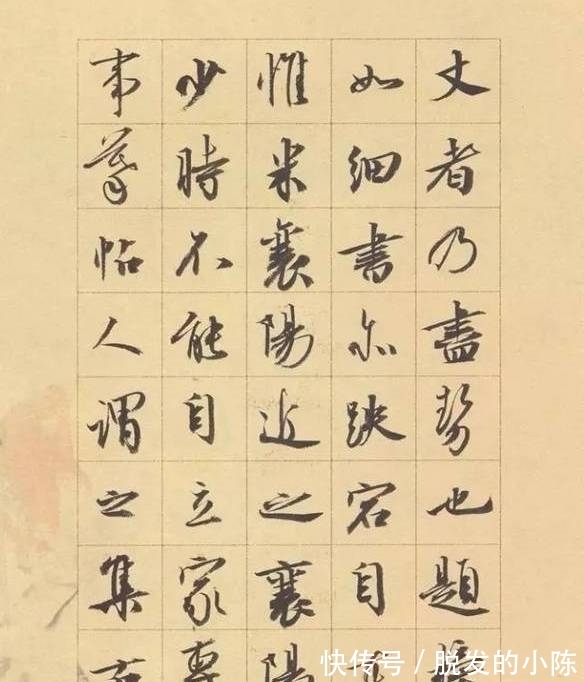 丈者乃盡勢也題
如細書亦跌宕自
惟米襄陽近之襄陽
少時不能自立家專
事摹帖人謂之集古
快传号 / 脱发的小陈